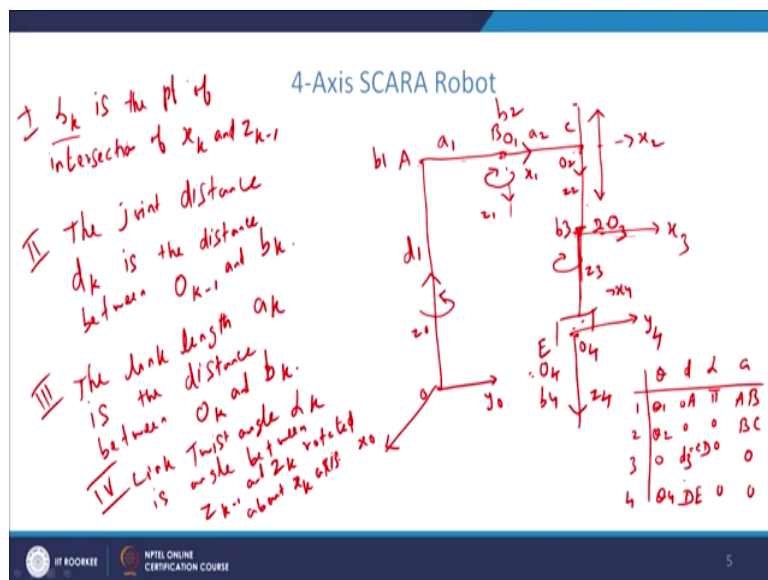 4-Axis SCARA Robot
I bk is the pt of
intersection of xk and zk-1
II The joint distance
dk is the distance
between Ok-1 and bk.
III The link length ak
is the distance
between Ok and bk.
IV Link Twist angle αk
is angle between
zk-1 and zk rotated
about xk axis
b1 A
a1
b2
B O1
a2
x1
z1
C
O2
z2
→ x2
d1
z0
0
y0
x0
b3
O3
x3
z3
→x4
y4
E
O4
O4
b4
z4
θ d α a
1 θ1 OA π AB
2 θ2 0 0 BC
3 0 d3 CD 0 0
4 θ4 DE 0 0
IIT ROORKEE
NPTEL ONLINE
CERTIFICATION COURSE
5